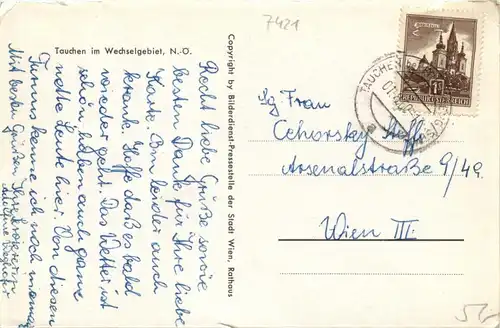 7421
Tauchen im Wechselgebiet, N.-Ö.
Recht liebe Grüße sowie
besten Dank für Ihre liebe
Karte. Bin leider auch
krank. Hoffe daß es bald
wieder geht. Das Wetter ist
schön, haben auch ganz
nette Leute hier. Von diesen
Turnus kenne ich noch niemand
Mit besten Grüßen Ihre
Copyright by Bilderdienst-Pressestelle der Stadt Wien, Rathaus
TAUCHEN
REPUBLIK ÖSTERREICH
Frau
Cehorsky Steffi
Arsenalstraße 9/49.
Wien III.